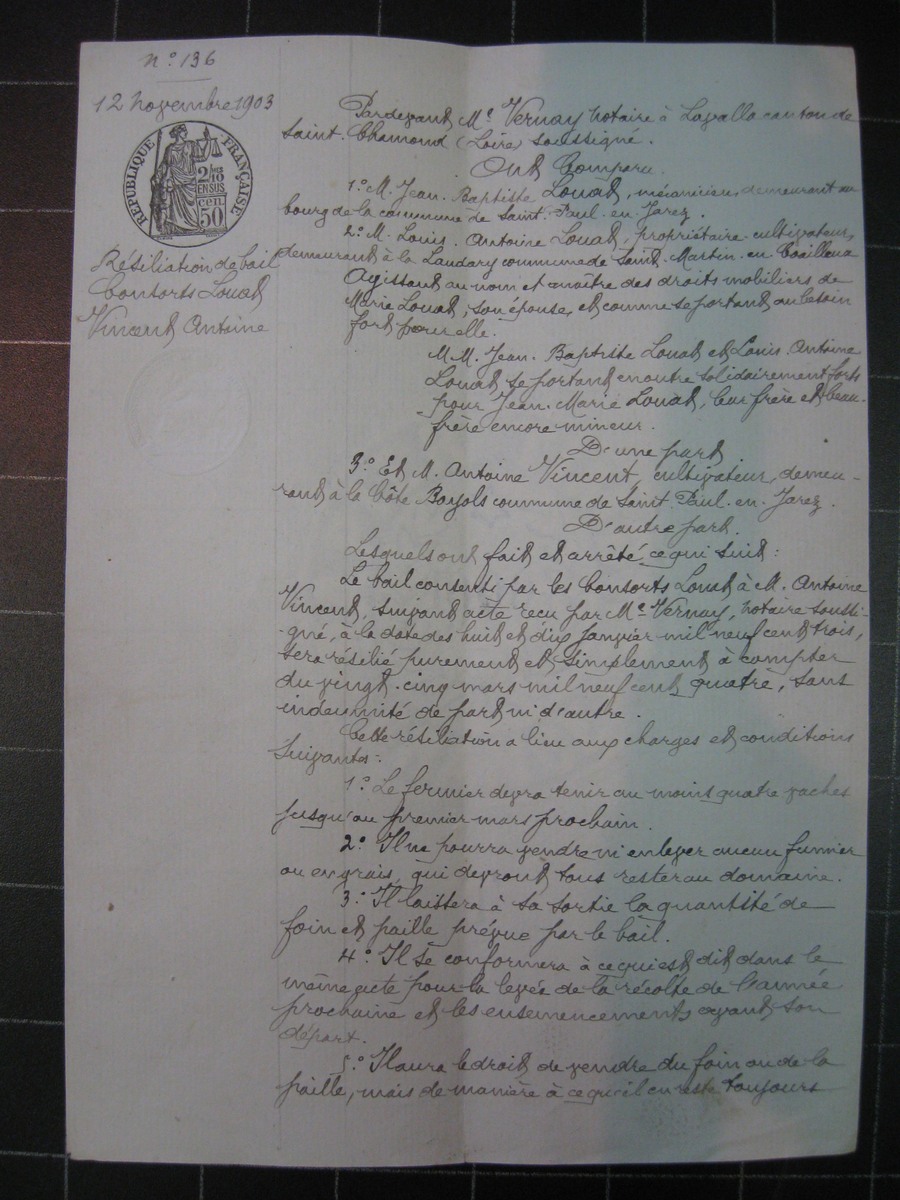 N° 136
12 novembre 1903
RÉPUBLIQUE FRANÇAISE
2/10
EN SUS
50 cen
Résiliation de bail
Consorts Louat
Vincent Antoine
Pardevant Me Vernay notaire à Lavalla canton de
Saint-Chamond (Loire) soussigné.
Ont Comparu
1° M. Jean-Baptiste Louat, mécanicien, demeurant au
bourg de la commune de Saint-Paul-en-Jarez.
2° M. Louis-Antoine Louat, propriétaire-cultivateur,
demeurant à la Laudary commune de Saint-Martin-en-Coailleux
Agissant au nom et maître des droits mobiliers de
Marie Louat, son épouse, et comme se portant au besoin
fort pour elle.
MM. Jean-Baptiste Louat et Louis-Antoine
Louat se portant en outre solidairement forts
pour Jean-Marie Louat, leur frère et beau-
frère encore mineur.
D'une part
3° Et M. Antoine Vincent, cultivateur, demeu-
rant à la Côte Bayols commune de Saint-Paul-en-Jarez.
D'autre part.
Lesquels ont fait et arrêté ce qui suit:
Le bail consenti par les consorts Louat à M. Antoine
Vincent, suivant acte reçu par Me Vernay, notaire soussi-
-gné, à la date des huit et dix janvier mil neuf cent trois,
sera résilié purement et simplement à compter
du vingt-cinq mars mil neuf cent quatre, sans
indemnité de part ni d'autre.
Cette résiliation a lieu aux charges et conditions
suivantes:
1° Le fermier devra tenir au moins quatre vaches
jusqu'au premier mars prochain.
2° Il ne pourra vendre ni enlever aucun fumier
ou engrais, qui devront tous rester au domaine.
3° Il laissera à sa sortie la quantité de
foin et paille prévue par le bail.
4° Il se conformera à ce qui est dit dans le
même acte pour la levée de la récolte de l'année
prochaine et les ensemencements avant son
départ.
5° Il aura le droit de vendre du foin ou de la
paille, mais de manière à ce qu'il en reste toujours